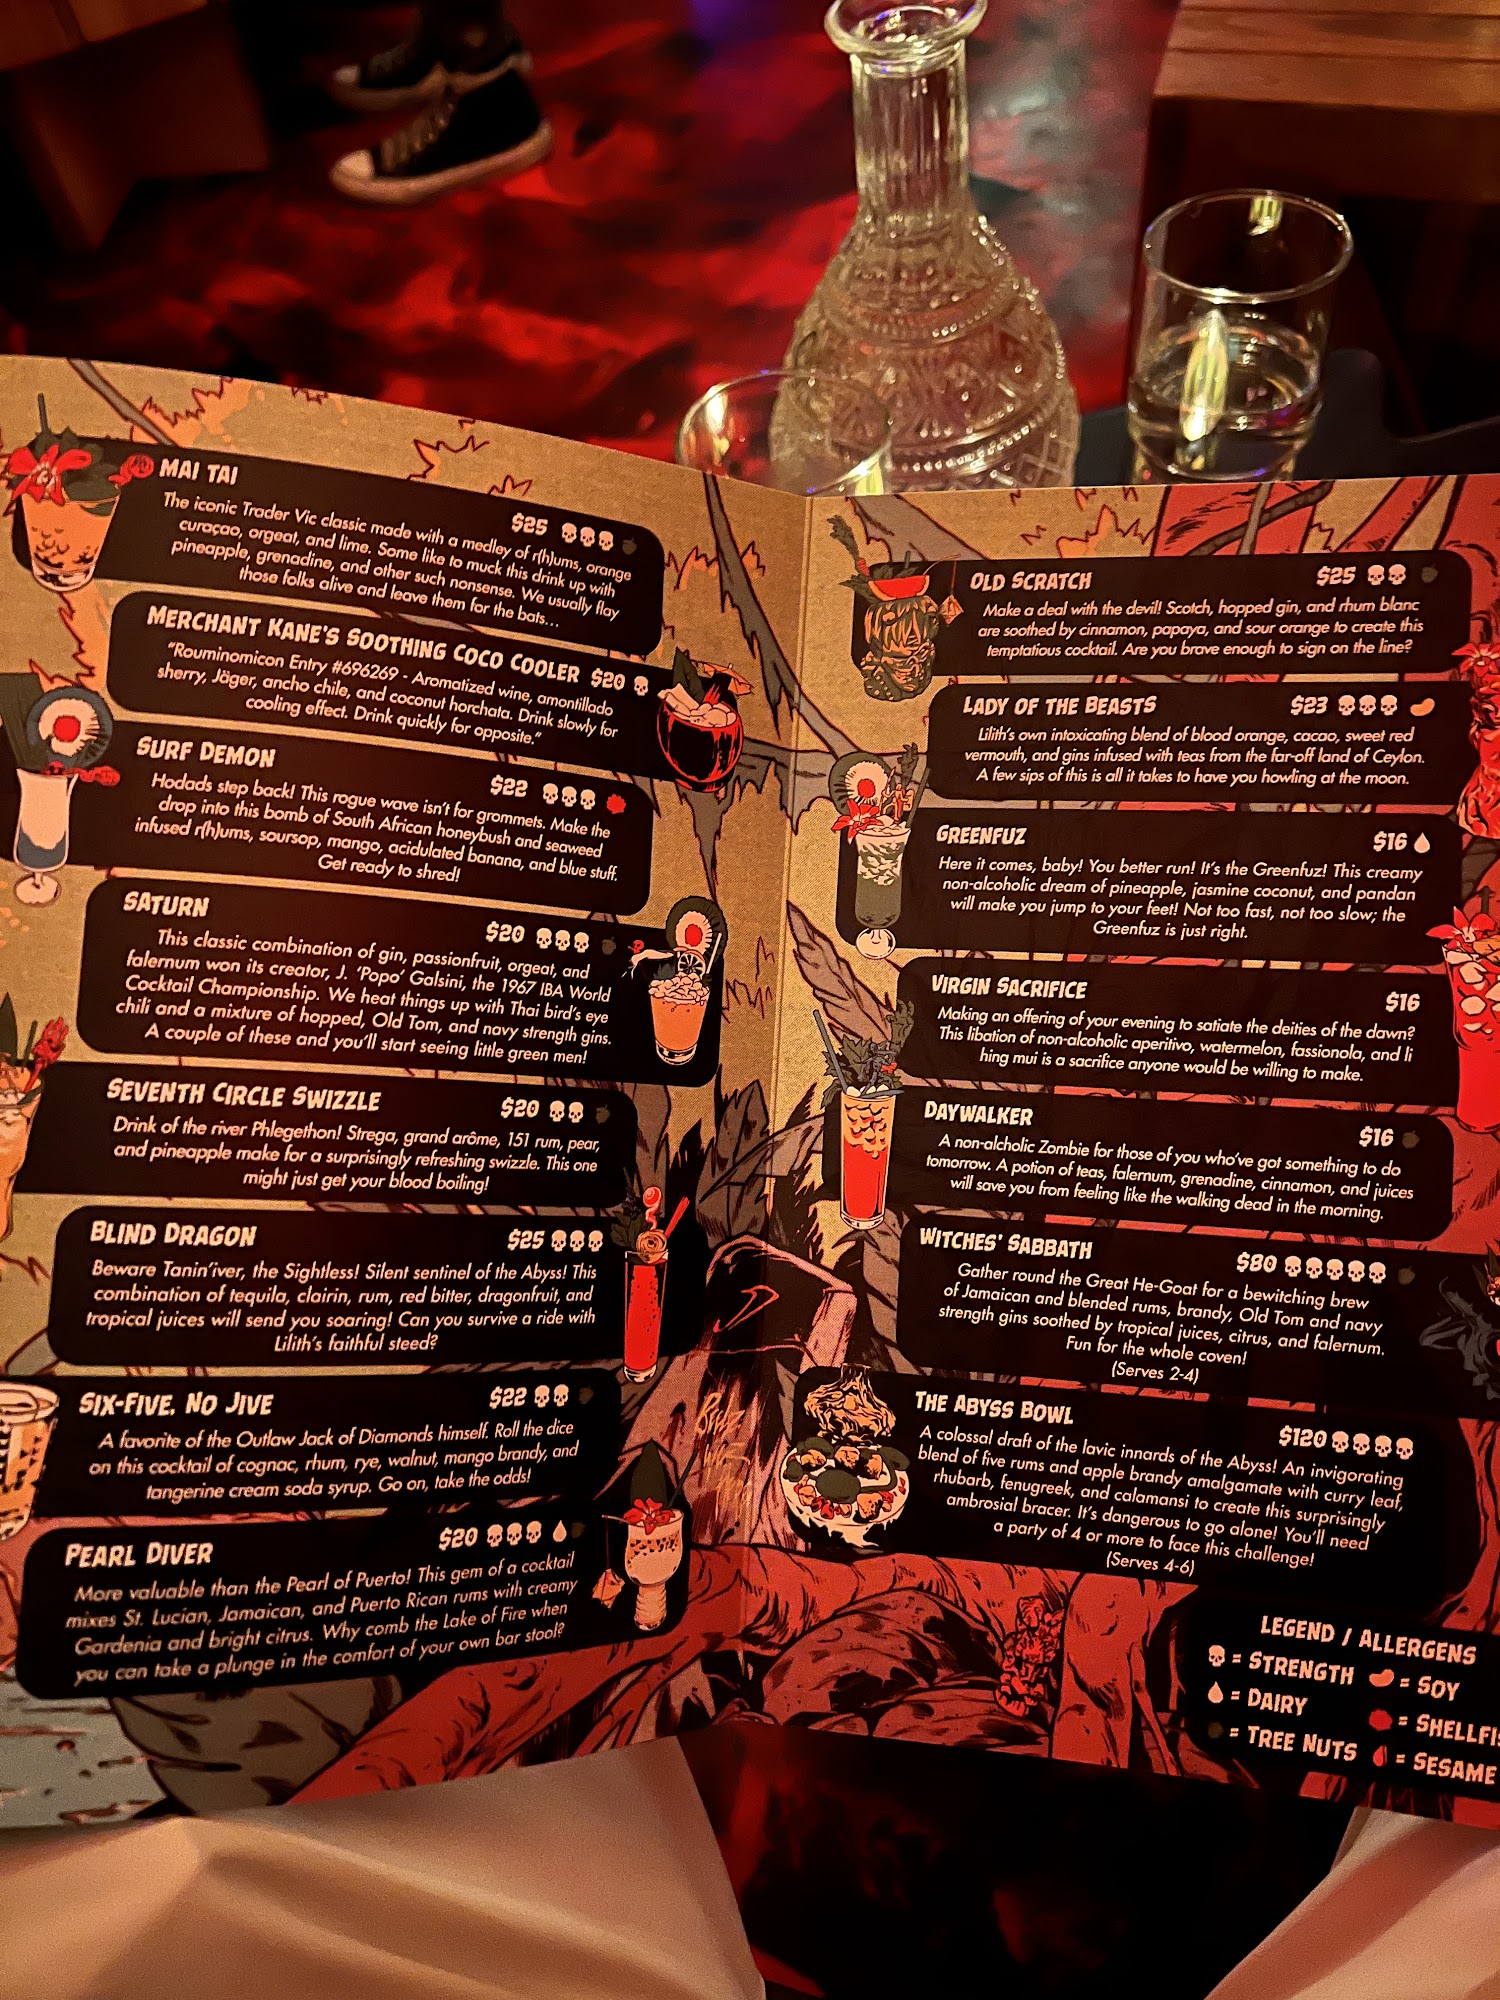 MAI TAI
$25
The iconic Trader Vic classic made with a medley of r(h)ums, orange
curaçao, orgeat, and lime. Some like to muck this drink up with
pineapple, grenadine, and other such nonsense. We usually flay
those folks alive and leave them for the bats...
MERCHANT KANE'S SOOTHING COCO COOLER $20
"Rouminomicon Entry #696269 - Aromatized wine, amontillado
sherry, Jäger, ancho chile, and coconut horchata. Drink slowly for
cooling effect. Drink quickly for opposite."
SURF DEMON
$22
Hodads step back! This rogue wave isn't for grommets. Make the
drop into this bomb of South African honeybush and seaweed
infused r(h)ums, soursop, mango, acidulated banana, and blue stuff.
Get ready to shred!
SATURN
$20
This classic combination of gin, passionfruit, orgeat, and
falernum won its creator, J. 'Popo' Galsini, the 1967 IBA World
Cocktail Championship. We heat things up with Thai bird's eye
chili and a mixture of hopped, Old Tom, and navy strength gins.
A couple of these and you'll start seeing little green men!
SEVENTH CIRCLE SWIZZLE
$20
Drink of the river Phlegethon! Strega, grand arôme, 151 rum, pear,
and pineapple make for a surprisingly refreshing swizzle. This one
might just get your blood boiling!
BLIND DRAGON
$25
Beware Tanin'iver, the Sightless! Silent sentinel of the Abyss! This
combination of tequila, clairin, rum, red bitter, dragonfruit, and
tropical juices will send you soaring! Can you survive a ride with
Lilith's faithful steed?
SIX-FIVE, NO JIVE
$22
A favorite of the Outlaw Jack of Diamonds himself. Roll the dice
on this cocktail of cognac, rhum, rye, walnut, mango brandy, and
tangerine cream soda syrup. Go on, take the odds!
PEARL DIVER
$20
More valuable than the Pearl of Puerto! This gem of a cocktail
mixes St. Lucian, Jamaican, and Puerto Rican rums with creamy
Gardenia and bright citrus. Why comb the Lake of Fire when
you can take a plunge in the comfort of your own bar stool?
OLD SCRATCH
$25
Make a deal with the devil! Scotch, hopped gin, and rhum blanc
are soothed by cinnamon, papaya, and sour orange to create this
temptatious cocktail. Are you brave enough to sign on the line?
LADY OF THE BEASTS
$23
Lilith's own intoxicating blend of blood orange, cacao, sweet red
vermouth, and gins infused with teas from the far-off land of Ceylon.
A few sips of this is all it takes to have you howling at the moon.
GREENFUZ
$16
Here it comes, baby! You better run! It's the Greenfuz! This creamy
non-alcoholic dream of pineapple, jasmine coconut, and pandan
will make you jump to your feet! Not too fast, not too slow; the
Greenfuz is just right.
VIRGIN SACRIFICE
$16
Making an offering of your evening to satiate the deities of the dawn?
This libation of non-alcoholic aperitivo, watermelon, fassionola, and li
hing mui is a sacrifice anyone would be willing to make.
DAYWALKER
$16
A non-alcholic Zombie for those of you who've got something to do
tomorrow. A potion of teas, falernum, grenadine, cinnamon, and juices
will save you from feeling like the walking dead in the morning.
WITCHES' SABBATH
$80
Gather round the Great He-Goat for a bewitching brew
of Jamaican and blended rums, brandy, Old Tom and navy
strength gins soothed by tropical juices, citrus, and falernum.
Fun for the whole coven!
(Serves 2-4)
THE ABYSS BOWL
$120
A colossal draft of the lavic innards of the Abyss! An invigorating
blend of five rums and apple brandy amalgamate with curry leaf,
rhubarb, fenugreek, and calamansi to create this surprisingly
ambrosial bracer. It's dangerous to go alone! You'll need
a party of 4 or more to face this challenge!
(Serves 4-6)
LEGEND / ALLERGENS
= STRENGTH = SOY
= DAIRY = SHELLFIS
= TREE NUTS = SESAME